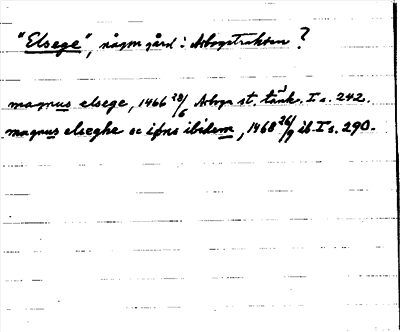 "Elsege", någon gård i Arbogatrakten?
magnus elsege, 1466 28/6 Arboga st. tänk. I s. 242.
magnus elseghe oc ibidem, 1468 26/9 ib. I s. 290.